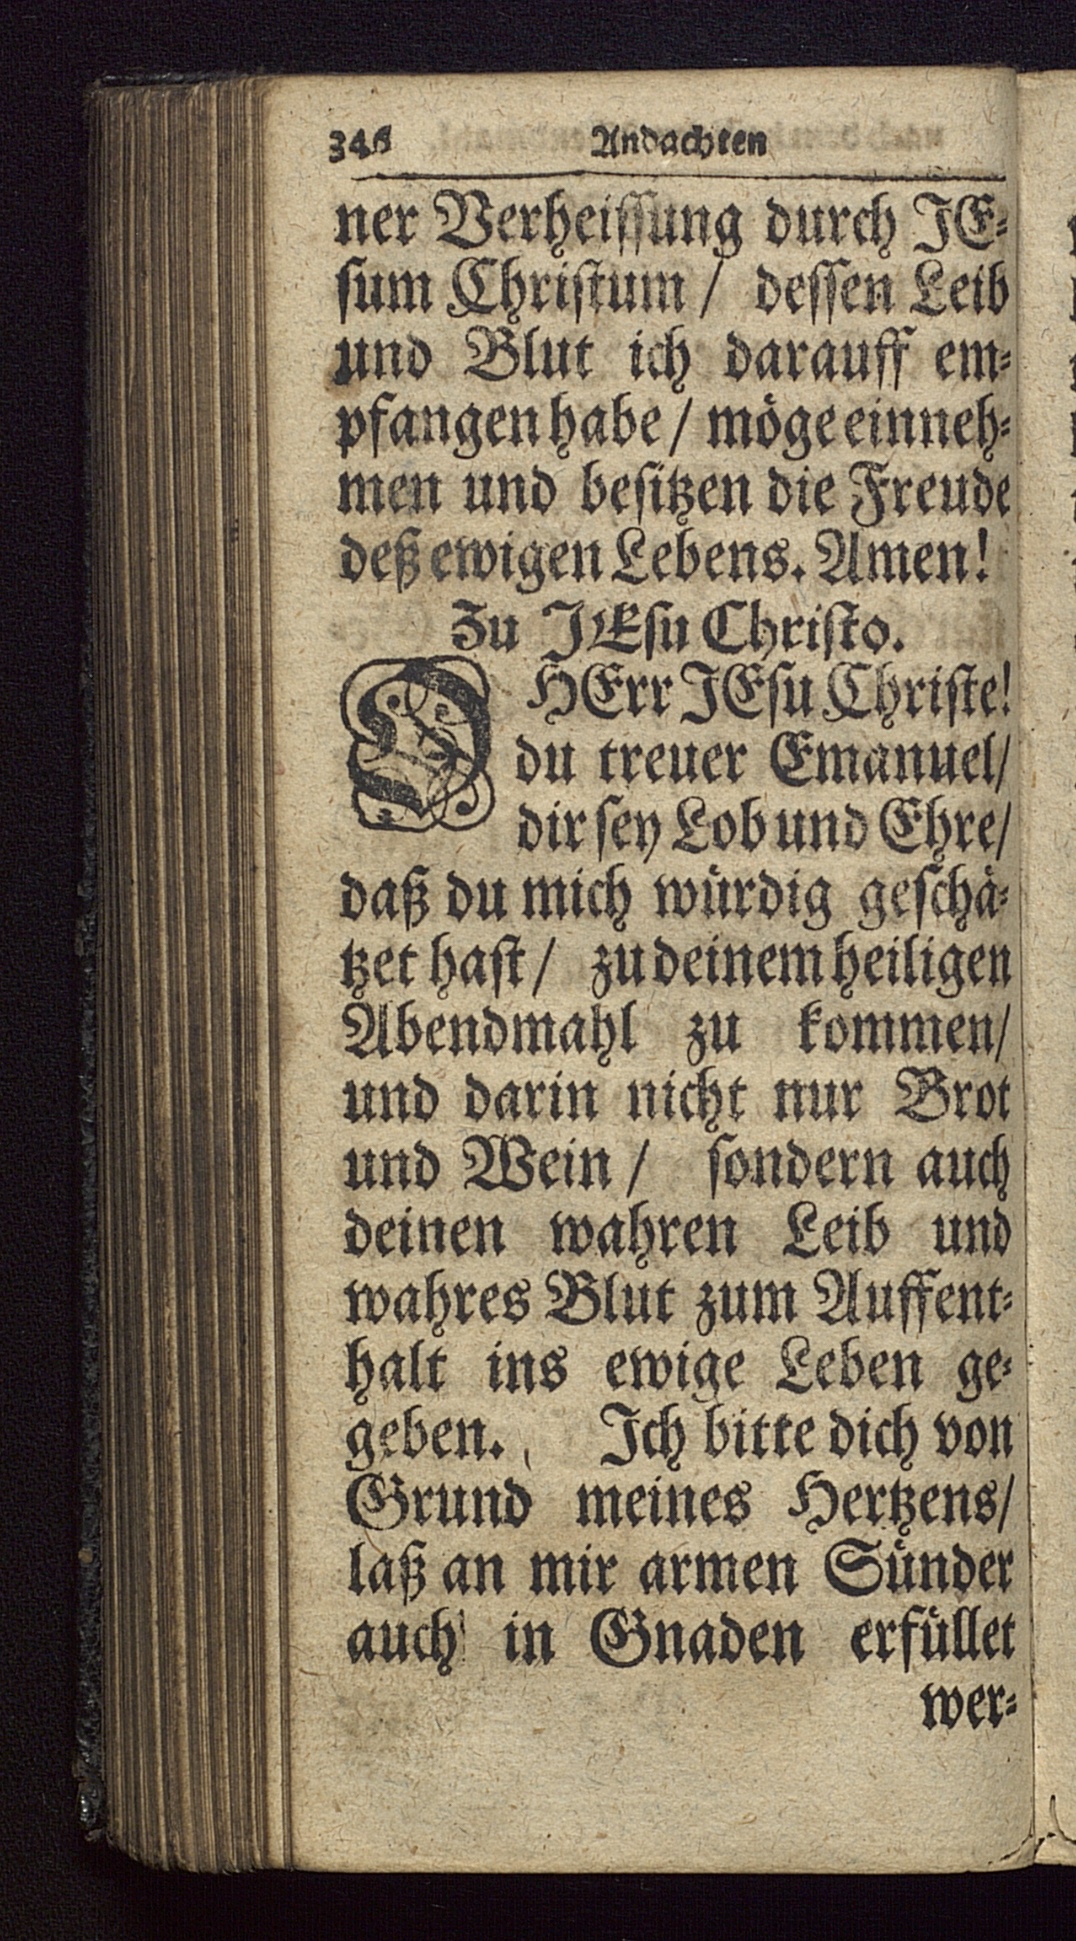 346 Andachten
ner Verheiſſung durch JE⸗
ſum Chriſtum / deſſen Leib
und Blut ich darauff em⸗
pfangen habe / möge einneh⸗
men und beſitzen die Freude
deß ewigen Lebens. Amen!
Zu JEſu Chriſto.
O HErr JEſu Chriſte!
du treuer Emanuel/
dir ſey Lob und Ehre/
daß du mich würdig geſchä⸗
tzet haſt / zu deinem heiligen
Abendmahl zu kommen/
und darin nicht nur Brot
und Wein / ſondern auch
deinen wahren Leib und
wahres Blut zum Auffent⸗
halt ins ewige Leben ge⸗
geben. Ich bitte dich von
Grund meines Hertzens/
laß an mir armen Sünder
auch in Gnaden erfüllet
wer⸗